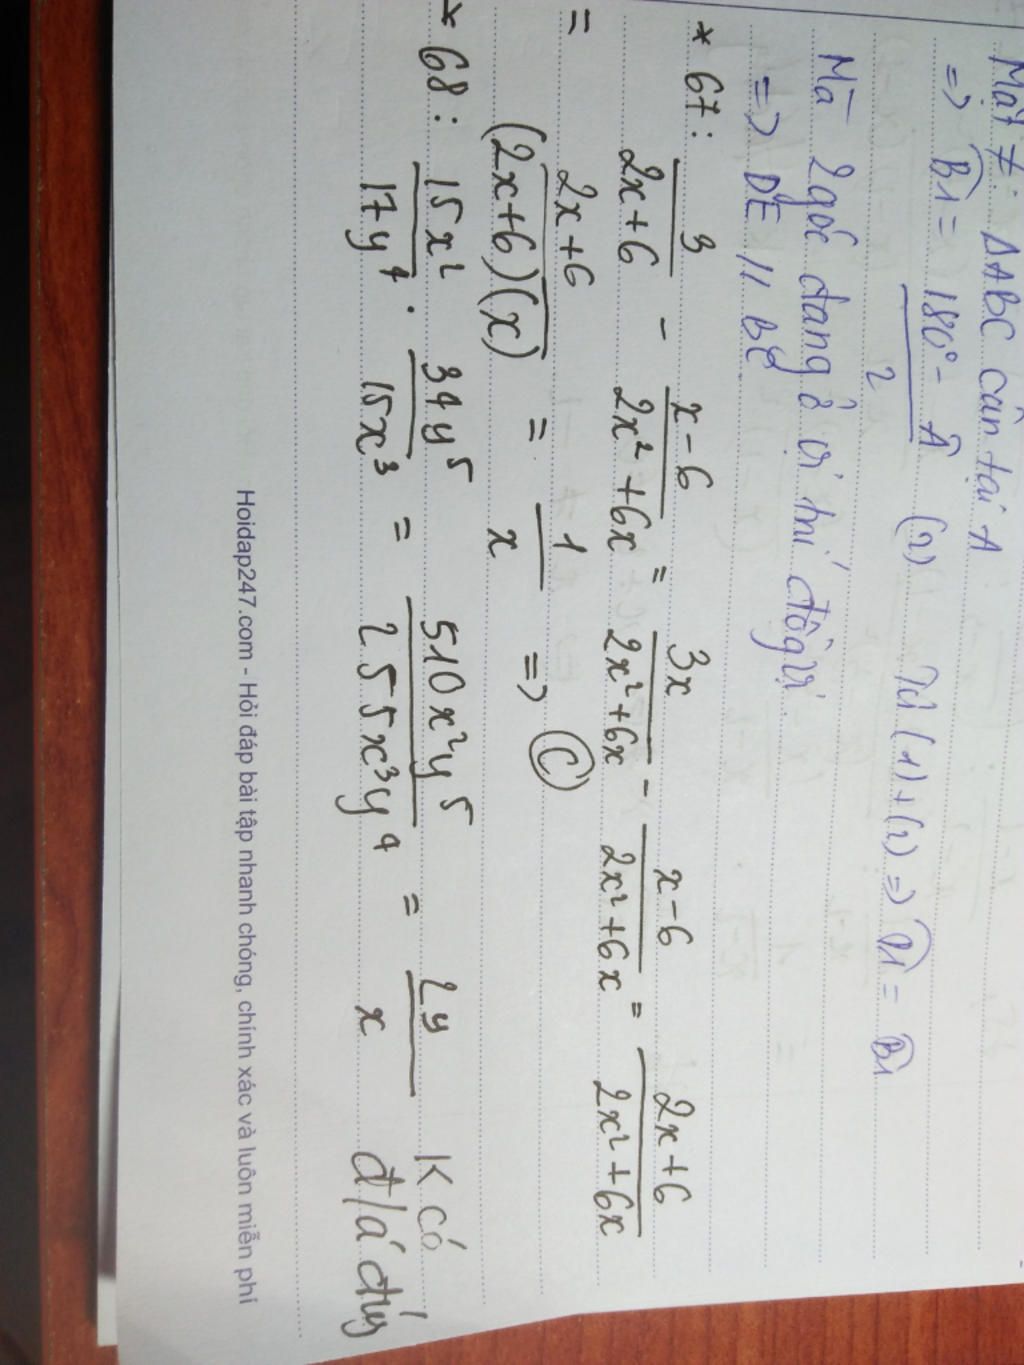 Mặt ≠: ΔABC cân tại A
=> B̂1 = (180° - Â)/2 (2) Từ (1)+(2) => D̂1 = B̂1
Mà 2 góc đang ở vị trí đồng vị
=> DE // BC
* 67: 3/(2x+6) - (x-6)/(2x²+6x) = 3x/(2x²+6x) - (x-6)/(2x²+6x) = (2x+6)/(2x²+6x)
= (2x+6)/((2x+6)(x)) = 1/x => C
* 68: 15x²/17y⁴ . 34y⁵/15x³ = 510x²y⁵/255x³y⁴ = 2y/x K có đ/á đúg
Hoidap247.com - Hỏi đáp bài tập nhanh chóng, chính xác và luôn miễn phí